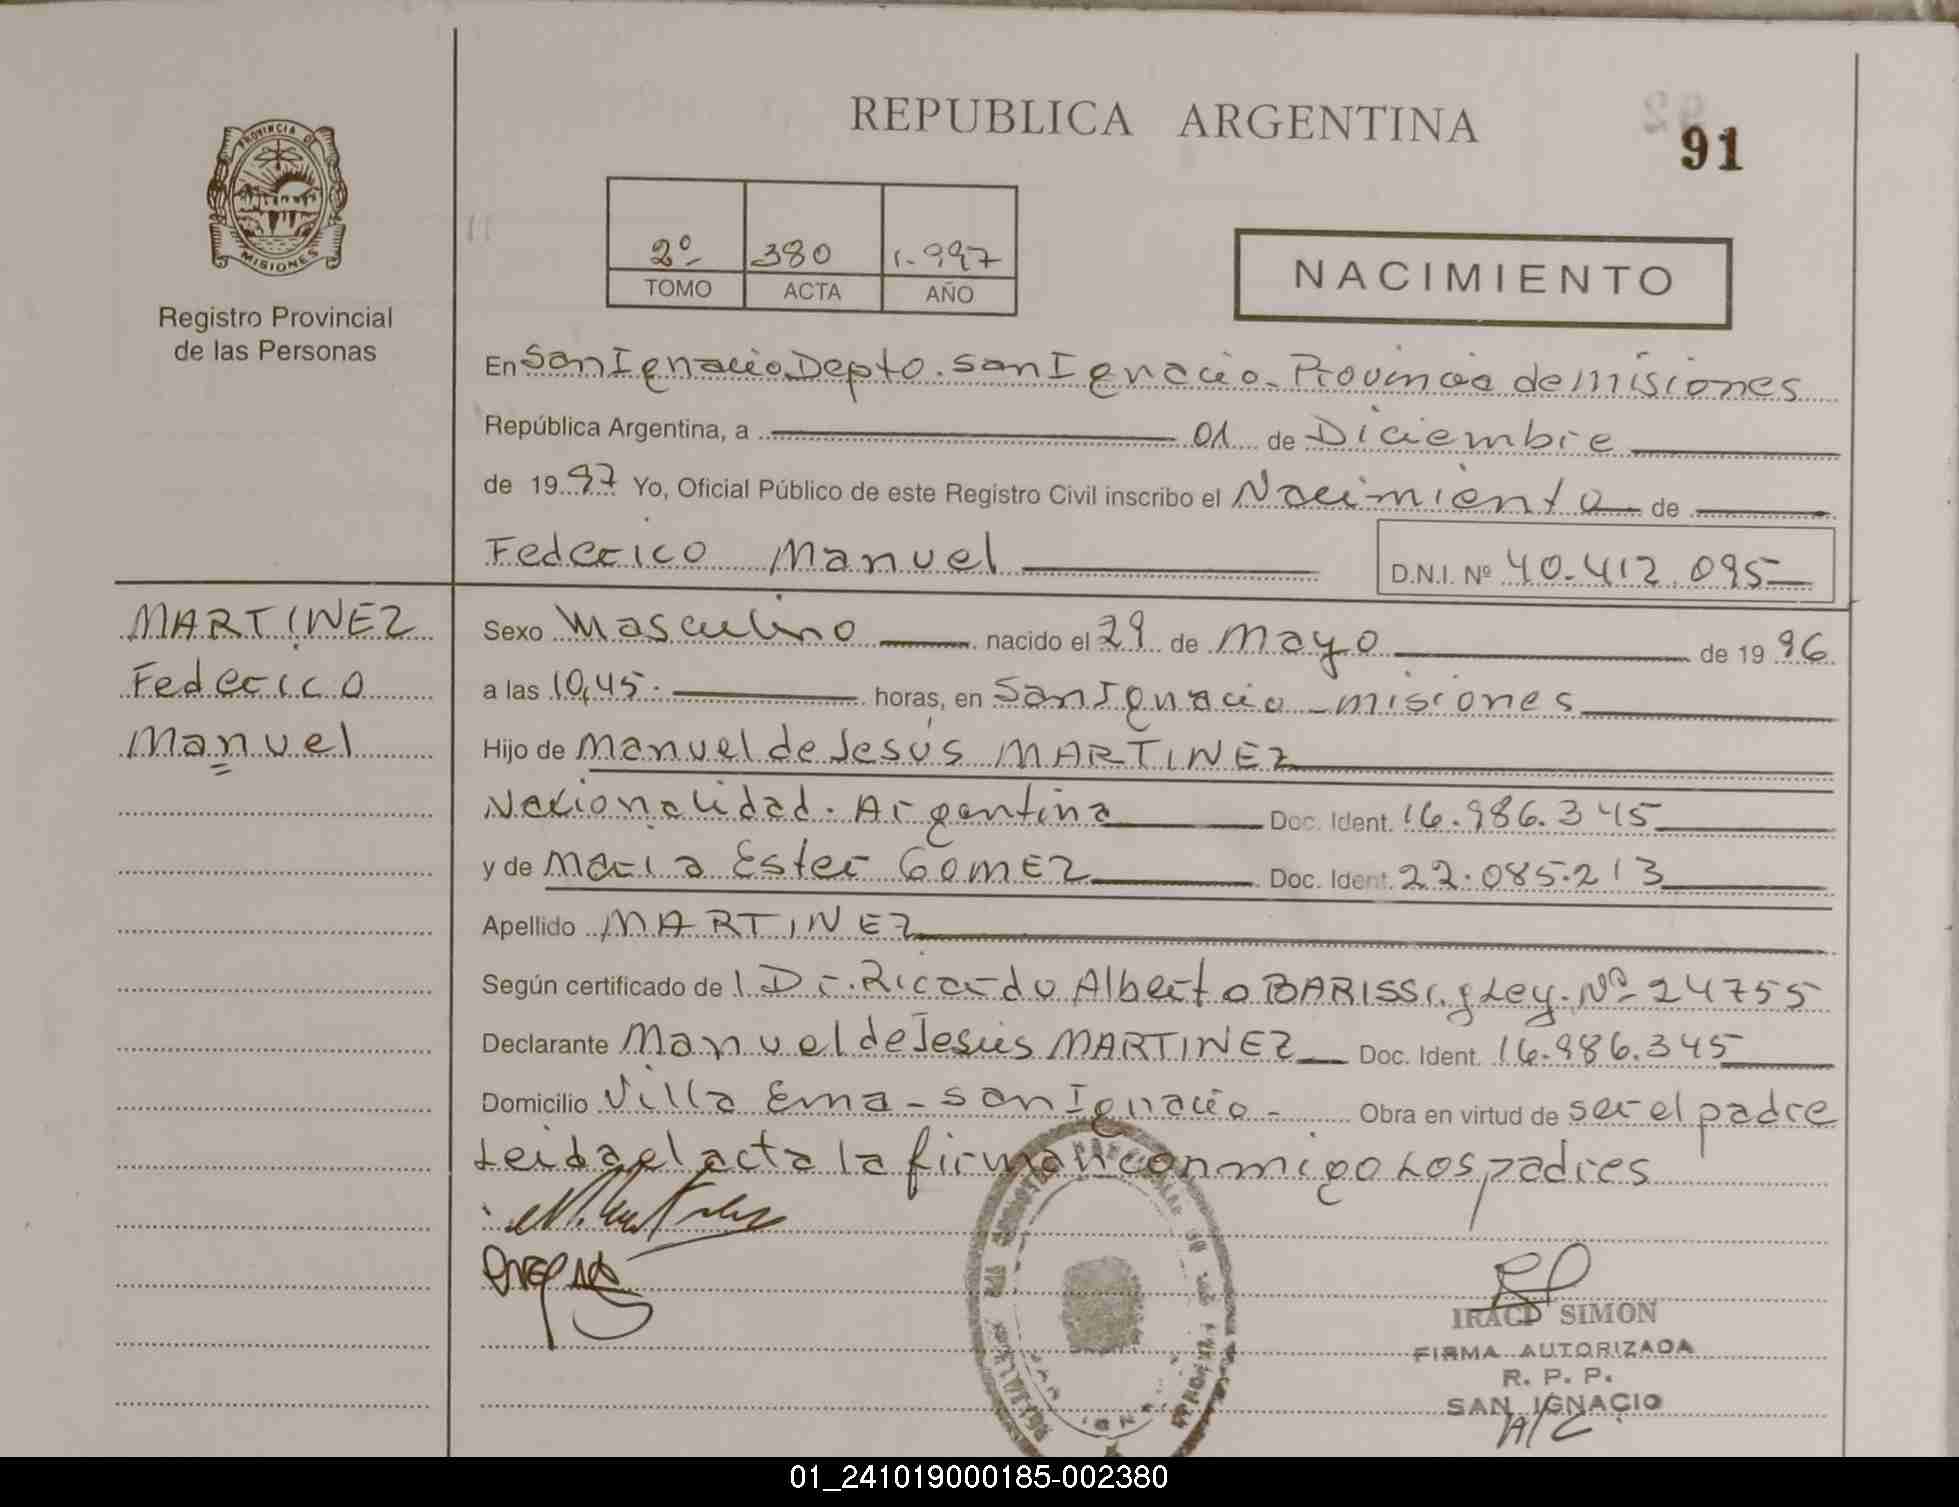 REPUBLICA ARGENTINA
91
PROVINCIA DE
MISIONES
Registro Provincial
de las Personas
2º 380 1.997
TOMO ACTA AÑO
NACIMIENTO
En San Ignacio Depto. San Ignacio - Provincia de misiones
República Argentina, a 01 de Diciembre
de 1997 Yo, Oficial Público de este Registro Civil inscribo el Nacimiento de
Federico Manuel
D.N.I. Nº 40.412.095
MARTINEZ
Federico
Manuel
Sexo Masculino nacido el 29 de Mayo de 1996
a las 10,45. horas, en San Ignacio - misiones
Hijo de Manuel de Jesús MARTINEZ
Nacionalidad. Argentina Doc. Ident. 16.986.345
y de Maria Ester GOMEZ Doc. Ident. 22.085.213
Apellido MARTINEZ
Según certificado del Dr. Ricardo Alberto BARISSI. y Ley. Nº 24755
Declarante Manuel de Jesús MARTINEZ Doc. Ident. 16.986.345
Domicilio Villa Ema - San Ignacio - Obra en virtud de ser el padre
Leida el acta la firman conmigo Los padres
IRACI SIMON
FIRMA AUTORIZADA
R. P. P.
SAN IGNACIO
A/C
01_241019000185-002380